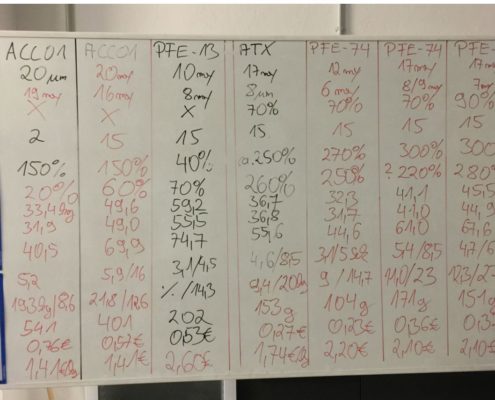 ACC01 ACC01 PFE-13 ATX PFE-74 PFE-74 PFE-
20 µm 20 my 10 my 17 my 12 my 17 my 17 my
19 my 16 my 8 my 8 µm 6 my 8/9 my 7 my
X X X 70% 70% 70% 90%
2 15 15 15 15 15 15
150% 150% 40% 250% 270% 300% 300
20% 60% 70% 260% 250% ? 220% 280
33,4 49,6 59,2 36,7 32,3 41,1 45,5
31,9 49,0 55,5 36,8 31,7 41,0 44,9
40,5 69,9 74,7 55,6 44,6 61,0 67,6
5,2 5,9/16 3,1/4,5 4,6/8,5 3,1/5 5,4/8,5 4,7/6
19,3 /8,6 21,8/12,6 /14,3 9,4/20 9/14,7 11,0/23 12,3/27
541 401 202 153g 104g 171g 151g
0,76€ 0,57€ 0,53€ 0,27€ 0,23€ 0,36€ 0,3
1,41€ 1,41€ 2,60€ 1,74€ 2,20€ 2,10€ 2,10€